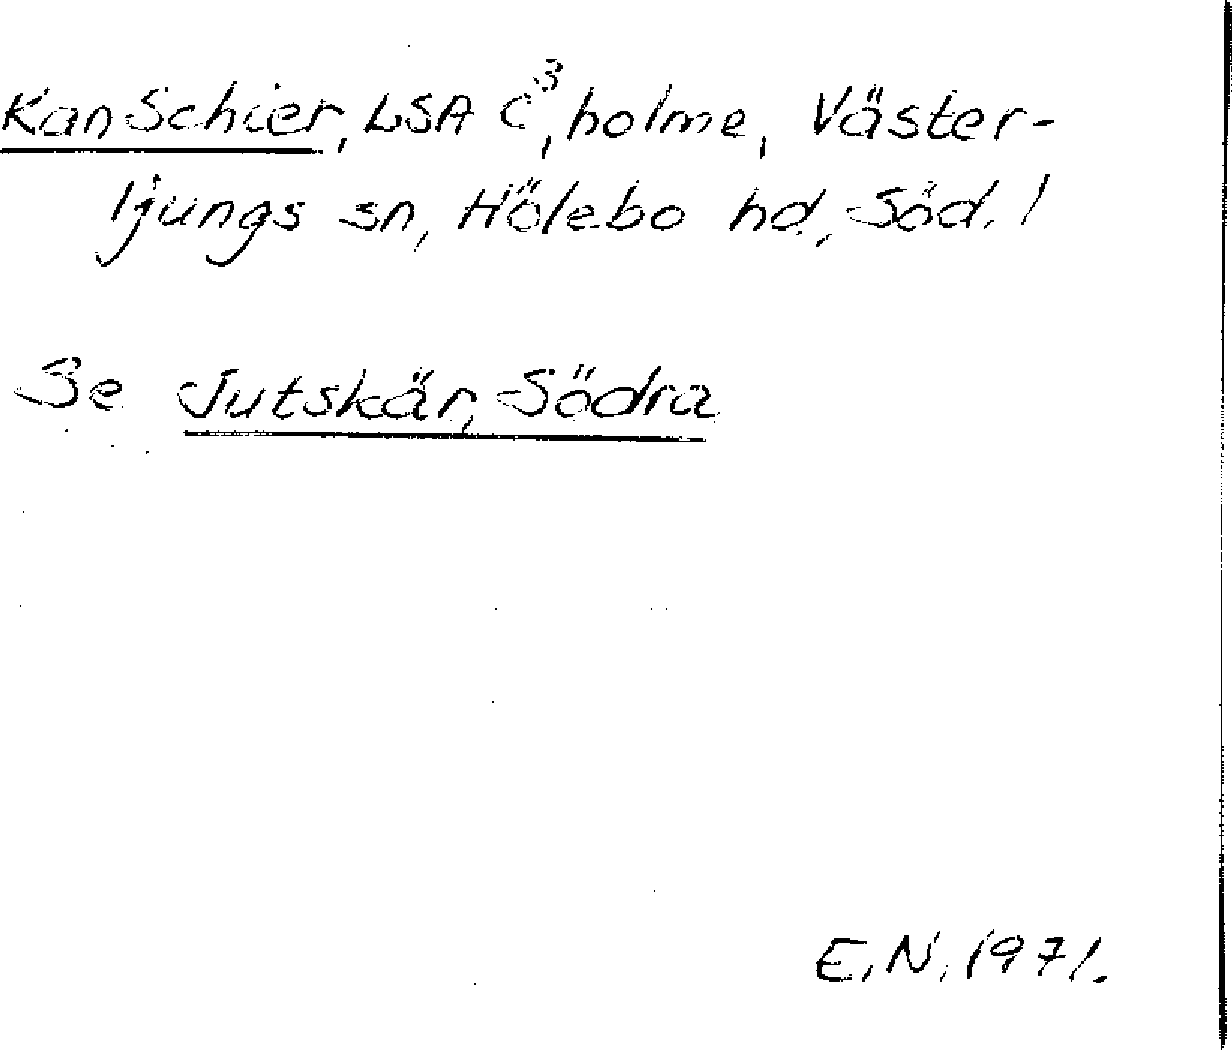 KanSchier, LSA C³, holme, Väster-
ljungs sn, Hölebo hd, Söd. !
Se Jutskär, Södra
E.N. 1971.